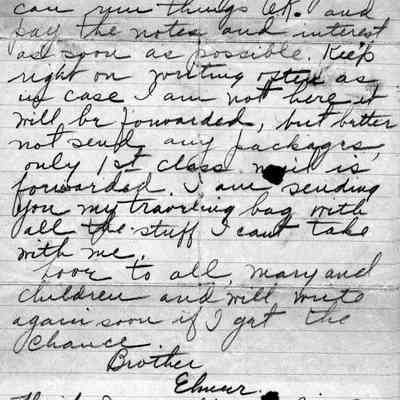 can run things O.K. and
pay the notes and interest
as soon as possible. Keep
right on writing often as
in case I am not here it
will be forwarded, but better
not send any packages,
only 1st class mail is
forwarded. I am sending
you my traveling bag with
all the stuff I cant take
with me.
Love to all, Mary and
children and will write
again soon if I get the
chance.
Brother
Elmer.